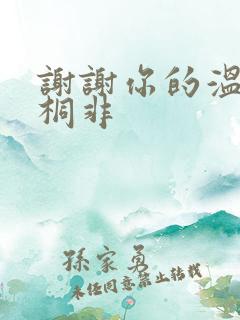 謝謝你的溫
桐非
孫家勇
未经同意禁止转载